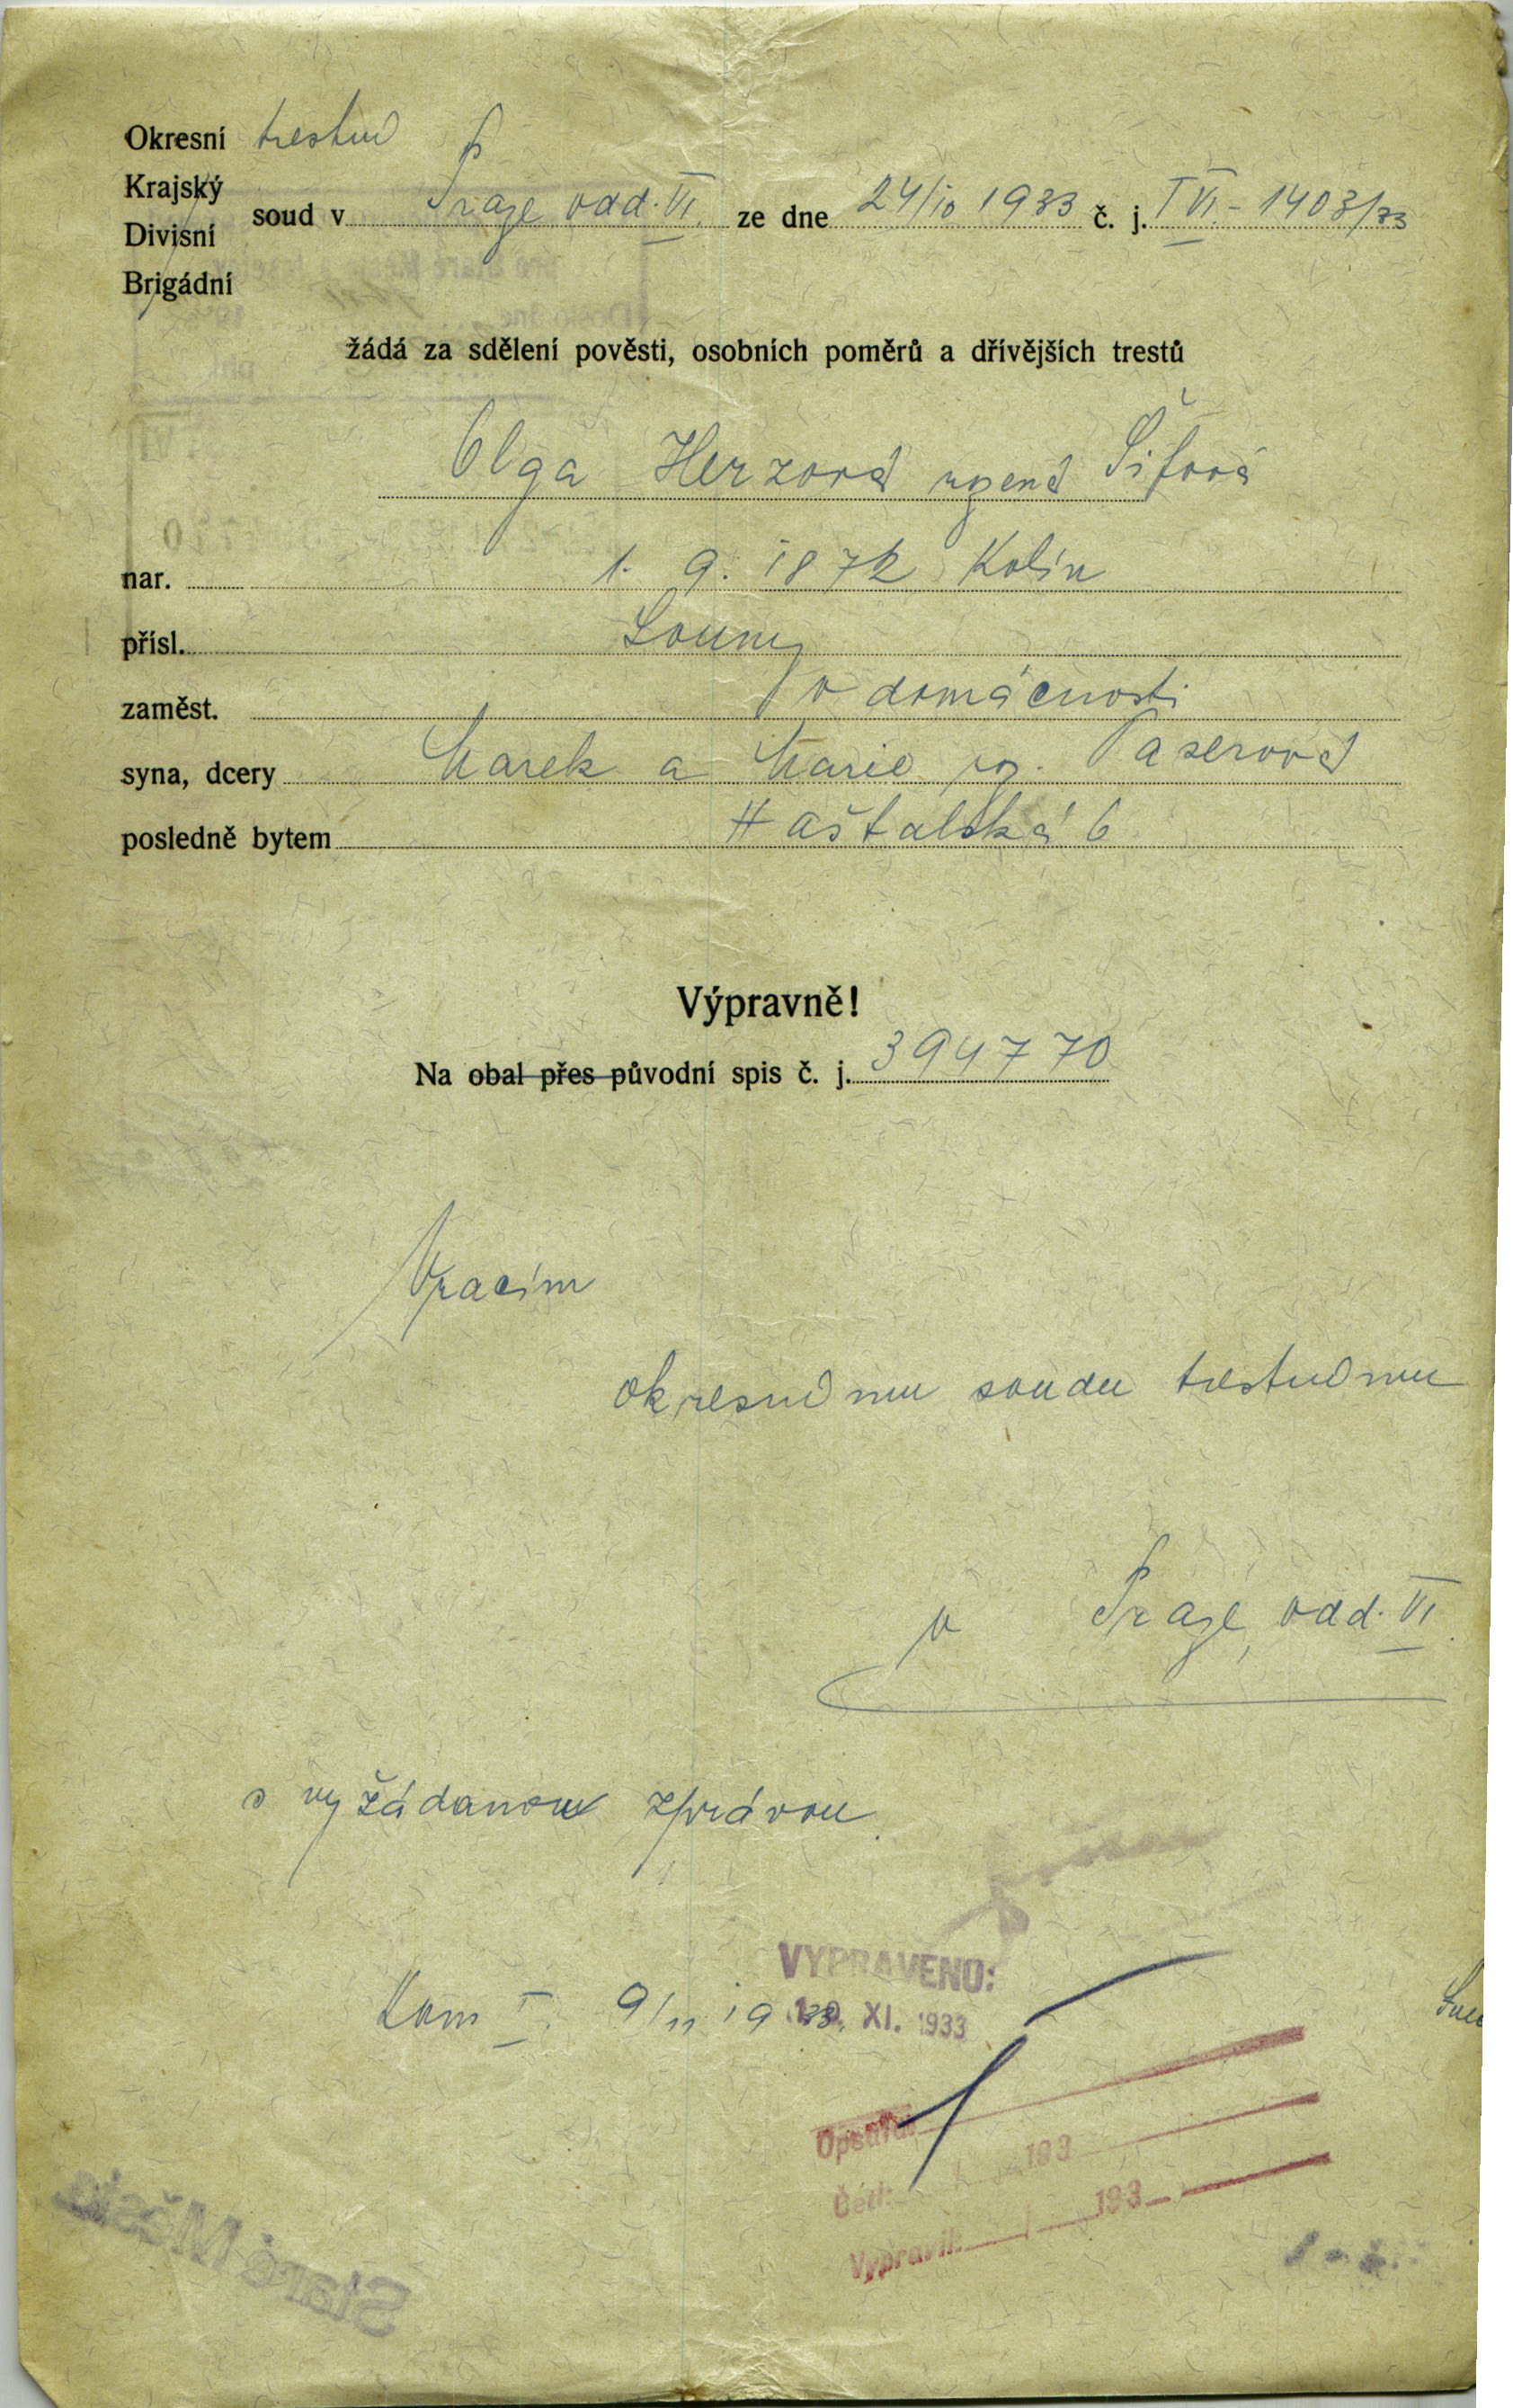 Okresní trestní
Krajský
Divisní
Brigádní
soud v Praze odd. VI. ze dne 24/10 1933 č. j. T VI. - 1403/33
žádá za sdělení pověsti, osobních poměrů a dřívějších trestů
Olga Herzová Šifová
nar. 1. 9. 1872 Kolín
přísl. Louny
zaměst. v domácnosti
syna, dcery Marek a Marie roz. Paserová
posledně bytem Haštalská 6
Výpravně!
Na obal přes původní spis č. j. 394770
Vracím
okresnímu soudu trestnímu
v Praze, odd. VI.
s vyžádanou zprávou.
VYPRAVENO:
10. XI. 1933
Kom I. 9/11 1933.
Opsáno:
Četl: 193
Vypravil: 193
Staré Město